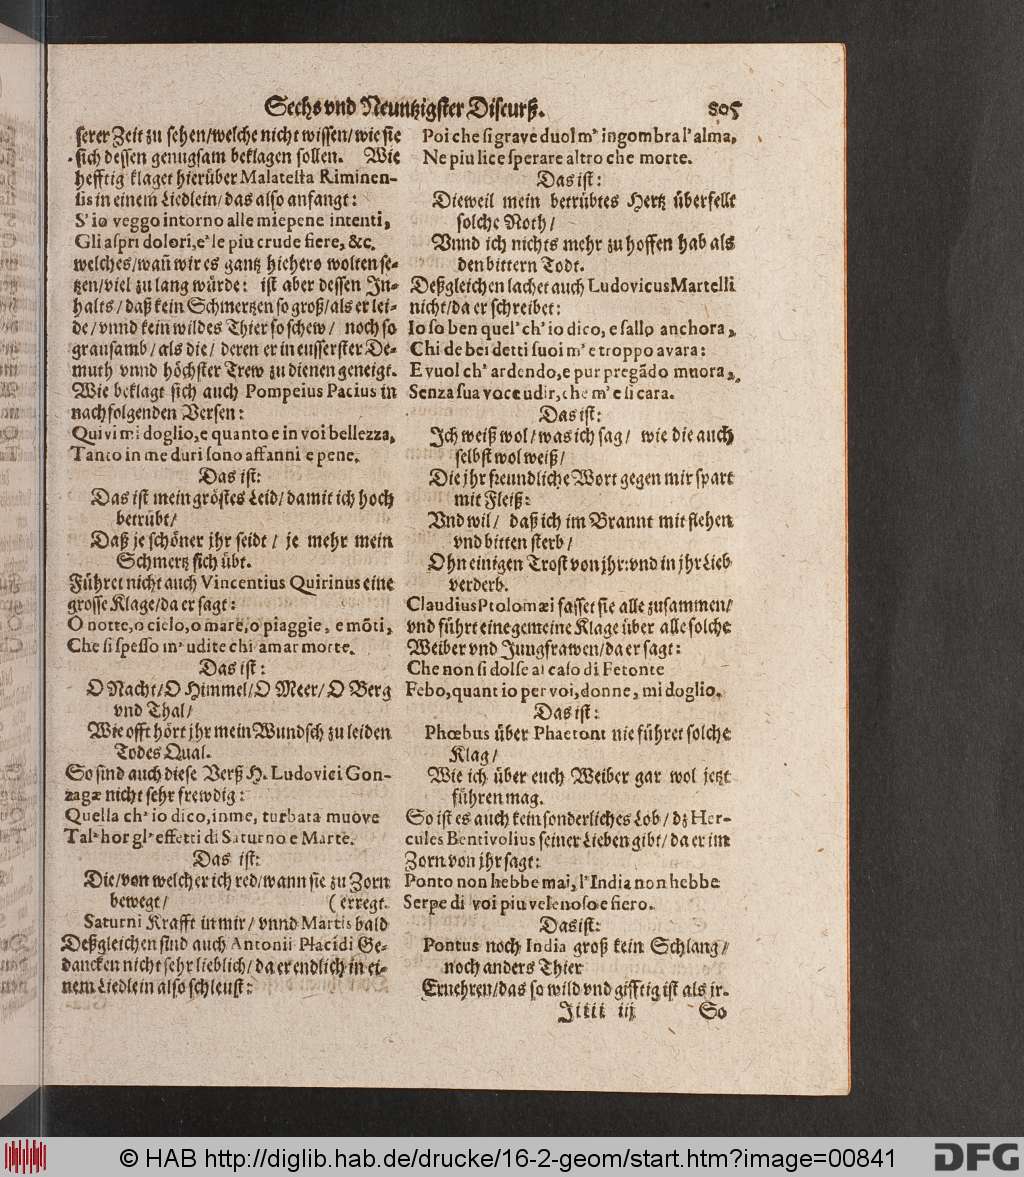 Sechs vnd Neuntzigster Discurß. 805
serer Zeit zu sehen/welche nicht wissen/wie sie
sich dessen genugsam beklagen sollen. Wie
hefftig klaget hierüber Malatesta Riminen-
sis in einem Liedlein/das also anfangt:
S'io veggo intorno alle mie pene intenti,
Gli aspri dolori,e'le piu crude fiere, &c.
welches/wañ wir es gantz hiehero wolten se-
tzen/viel zu lang würde: ist aber dessen In-
halts/daß kein Schmertzen so groß/als er lei-
de/vnnd kein wildes Thier so schew/ noch so
grausamb/als die/ deren er in eusserster De-
muth vnnd höchster Trew zu dienen geneigt.
Wie beklagt sich auch Pompeius Pacius in
nachfolgenden Versen:
Quivi mi doglio,e quanto e in voi bellezza,
Tanto in me duri sono affanni e pene.
Das ist:
Das ist mein gröstes Leid/damit ich hoch
betrübt/
Daß je schöner jhr seidt/ je mehr mein
Schmertz sich übt.
Führet nicht auch Vincentius Quirinus eine
grosse Klage/da er sagt:
O notte,o cielo,o mare,o piaggie, e mõti,
Che si spesso m'udite chiamar morte.
Das ist:
O Nacht/O Himmel/O Meer/O Berg
vnd Thal/
Wie offt hört jhr mein Wundsch zu leiden
Todes Qual.
So sind auch diese Verß H. Ludovici Gon-
zagæ nicht sehr frewdig:
Quella ch'io dico,in me, turbata muove
Tal'hor gl'effetti di Saturno e Marte.
Das ist:
Die/von welcher ich red/wann sie zu Zorn
bewegt/ (erregt.
Saturni Krafft in mir/ vnnd Martis bald
Deßgleichen sind auch Antonii Placidi Ge-
dancken nicht sehr lieblich/da er endlich in ei-
nem Liedlein also schleust:
Poi che si grave duol m'ingombra l'alma,
Ne piu lice sperare altro che morte.
Das ist:
Dieweil mein betrübtes Hertz überfellt
solche Noth/
Vnnd ich nichts mehr zu hoffen hab als
den bittern Todt.
Deßgleichen lachet auch Ludovicus Martelli
nicht/da er schreibet:
Io so ben quel' ch'io dico, e sallo anchora,
Chi de bei detti suoi m'e troppo avara:
E vuol ch'ardendo,e pur pregãdo muora,
Senza sua voce udir,che m'e si cara.
Das ist:
Ich weiß wol/was ich sag/ wie die auch
selbst wol weiß/
Die jhr freundliche Wort gegen mir spart
mit Fleiß:
Vnd wil/ daß ich im Brannt mit flehen
vnd bitten sterb/
Ohn einigen Trost von jhr:vnd in jhr Lieb
verderb.
Claudius Ptolomæi fasset sie alle zusammen/
vnd führt eine gemeine Klage über alle solche
Weiber vnd Jungfrawen/da er sagt:
Che non si dolse al caso di Fetonte
Febo,quant io per voi,donne, mi doglio.
Das ist:
Phœbus über Phaetont nie führet solche
Klag/
Wie ich über euch Weiber gar wol jetzt
führen mag.
So ist es auch kein sonderliches Lob/dz Her-
cules Bentivolius seiner Lieben gibt/da er im
Zorn von jhr sagt:
Ponto non hebbe mai,l'India non hebbe
Serpe di voi piu velenoso e fiero.
Das ist:
Pontus noch India groß kein Schlang/
noch anders Thier
Ernehren/das so wild vnd gifftig ist als jr.
Jiiii iij So
© HAB http://diglib.hab.de/drucke/16-2-geom/start.htm?image=00841
DFG